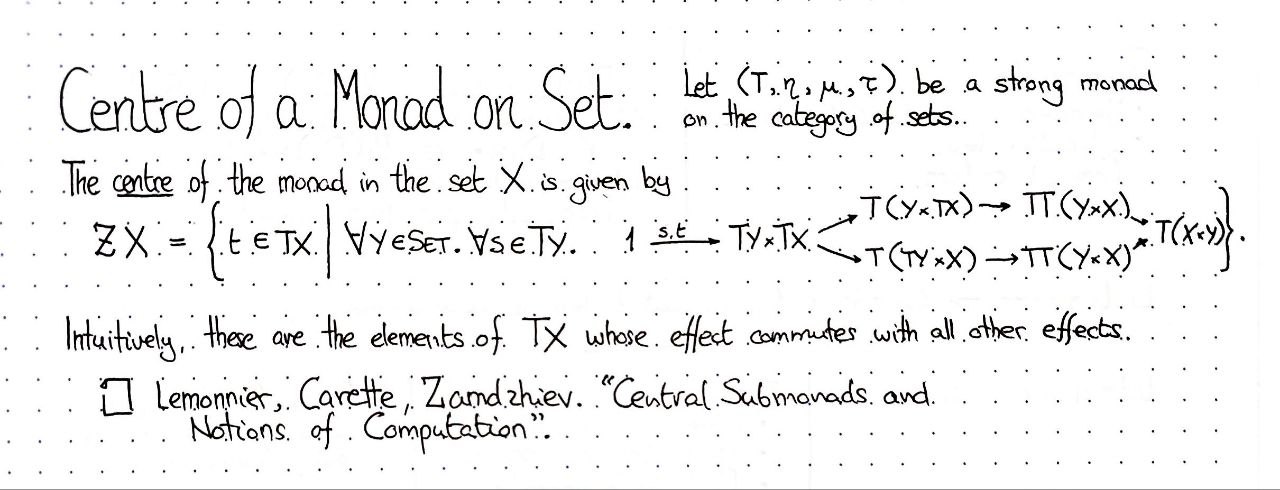 Centre of a Monad on Set.
Let (T, η, μ, τ) be a strong monad
on the category of sets.
The centre of the monad in the set X is given by
ZX = { t ∈ TX | ∀Y∈SET. ∀s∈TY. 1 —s,t→ TY×TX
→ T(Y×TX) → TT(Y×X) → T(X×Y)
→ T(TY×X) → TT(Y×X) → T(X×Y) }.
Intuitively, these are the elements of TX whose effect commutes with all other effects.
Lemonnier, Carette, Zamdzhiev. "Central Submonads and
Notions of Computation".